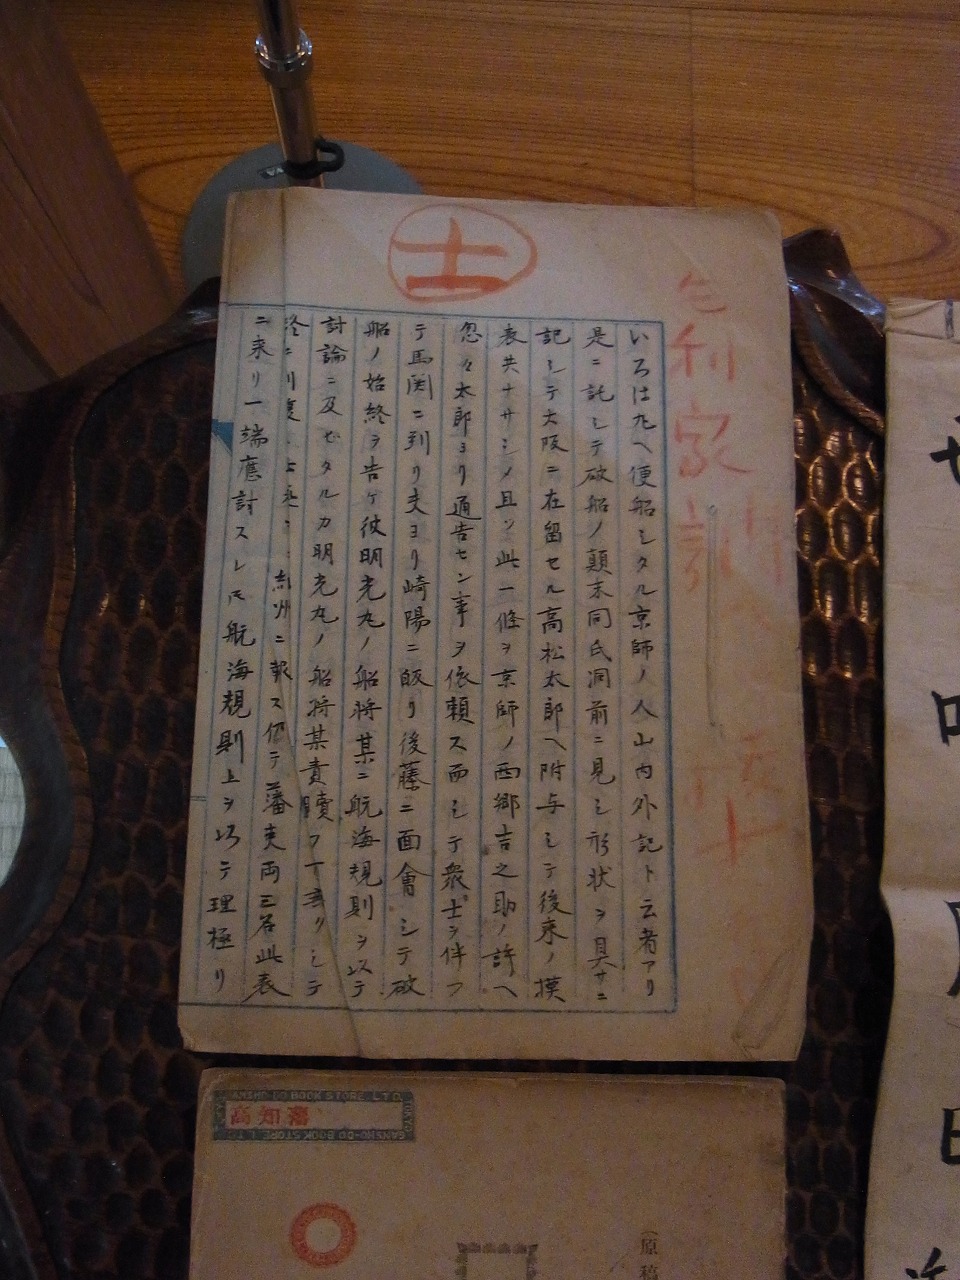 士
毛利家
いろは丸ヘ便船シタル京師ノ人山内外記ト云者アリ
是ニ託シテ破船ノ顛末同氏洞前ニ見シ形状ヲ具サニ
記シテ大阪ニ在留セル高松太郎ヘ附与シテ後来ノ摸
表共ナサシメ且ツ此一條ヲ京師ノ西郷吉之助ノ許ヘ
忽々太郎ヨリ通告セン事ヲ依頼ス而シテ衆士ヲ伴フ
テ馬関ニ到リ夫ヨリ崎陽ニ皈リ後藤ニ面會シテ破
船ノ始終ヲ告ケ彼明光丸ノ船将某ニ航海規則ヲ以テ
討論ニ及ビタルカ明光丸ノ船将某責
紀州ニ報ス仍テ藩吏両三名此表
ニ来リ一端應討スレ𪜈航海規則上ヲ以テ理極リ
GANSHO-DO BOOK STORE, LTD.
高知藩
GANSHO-DO BOOK STORE, LTD.
(原稿